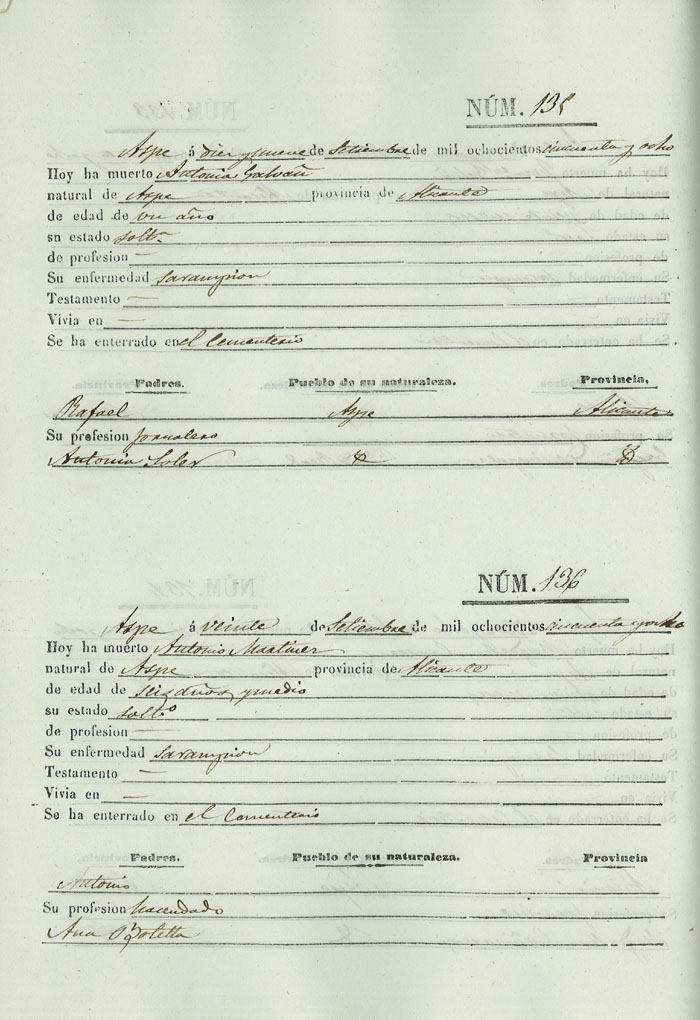 NÚM. 135
Aspe á diez y nueve de Setiembre de mil ochocientos cincuenta y ocho
Hoy ha muerto Antonia Galvañ
natural de Aspe provincia de Alicante
de edad de un año
sn estado solt.ª
de profesion —
Su enfermedad sarampion
Testamento —
Vivia en —
Se ha enterrado en el Cementerio
Padres. Pueblo de su naturaleza. Provincia,
Rafael Aspe Alicante
Su profesion jornalero
Antonia Soler
NÚM. 136
Aspe á veinte de Setiembre de mil ochocientos cincuenta y ocho
Hoy ha muerto Antonio Martinez
natural de Aspe provincia de Alicante
de edad de seis años y medio
su estado solt.º
de profesion —
Su enfermedad sarampion
Testamento —
Vivia en —
Se ha enterrado en el Cementerio
Padres. Pueblo de su naturaleza. Provincia
Antonio
Su profesion hacendado
Ana Botella